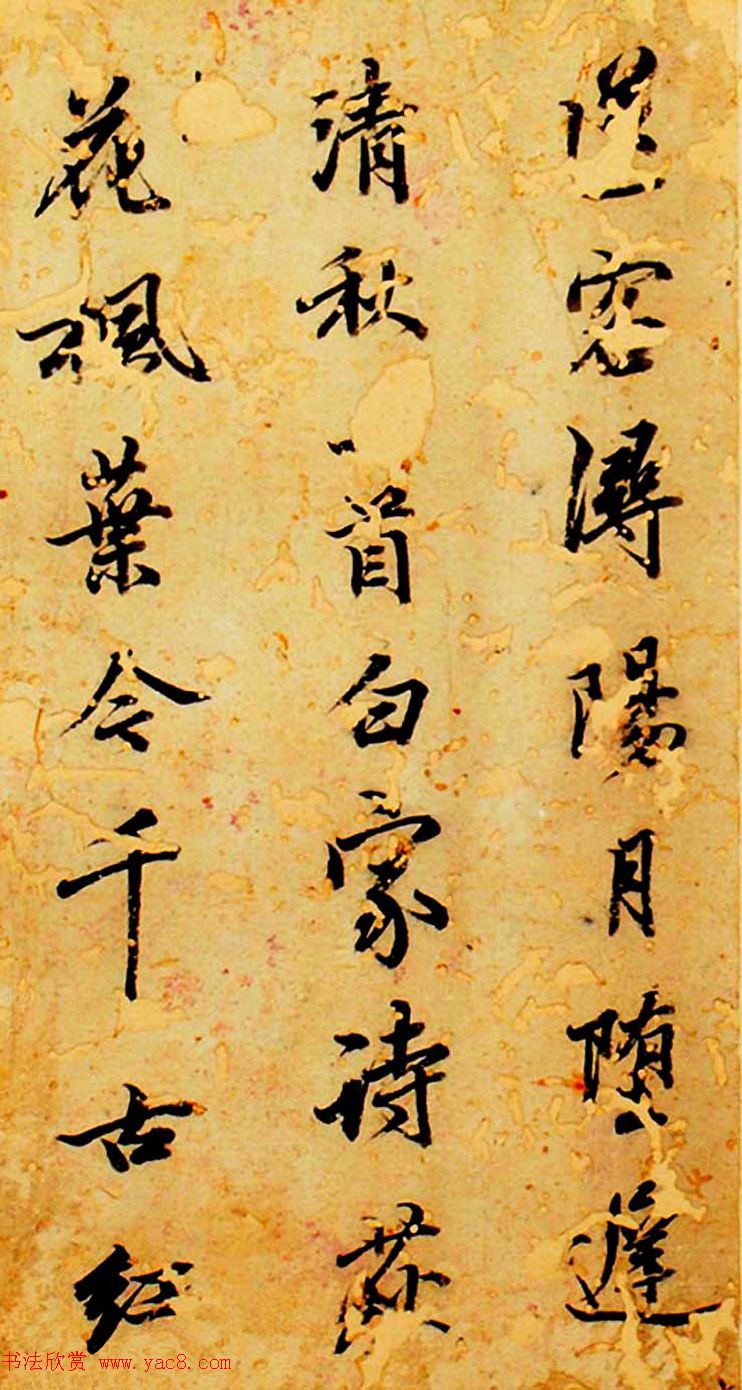 送客潯陽月堕遲
清秋一首白家詩荻
花楓葉今千古絕
书法欣赏 www.yac8.com